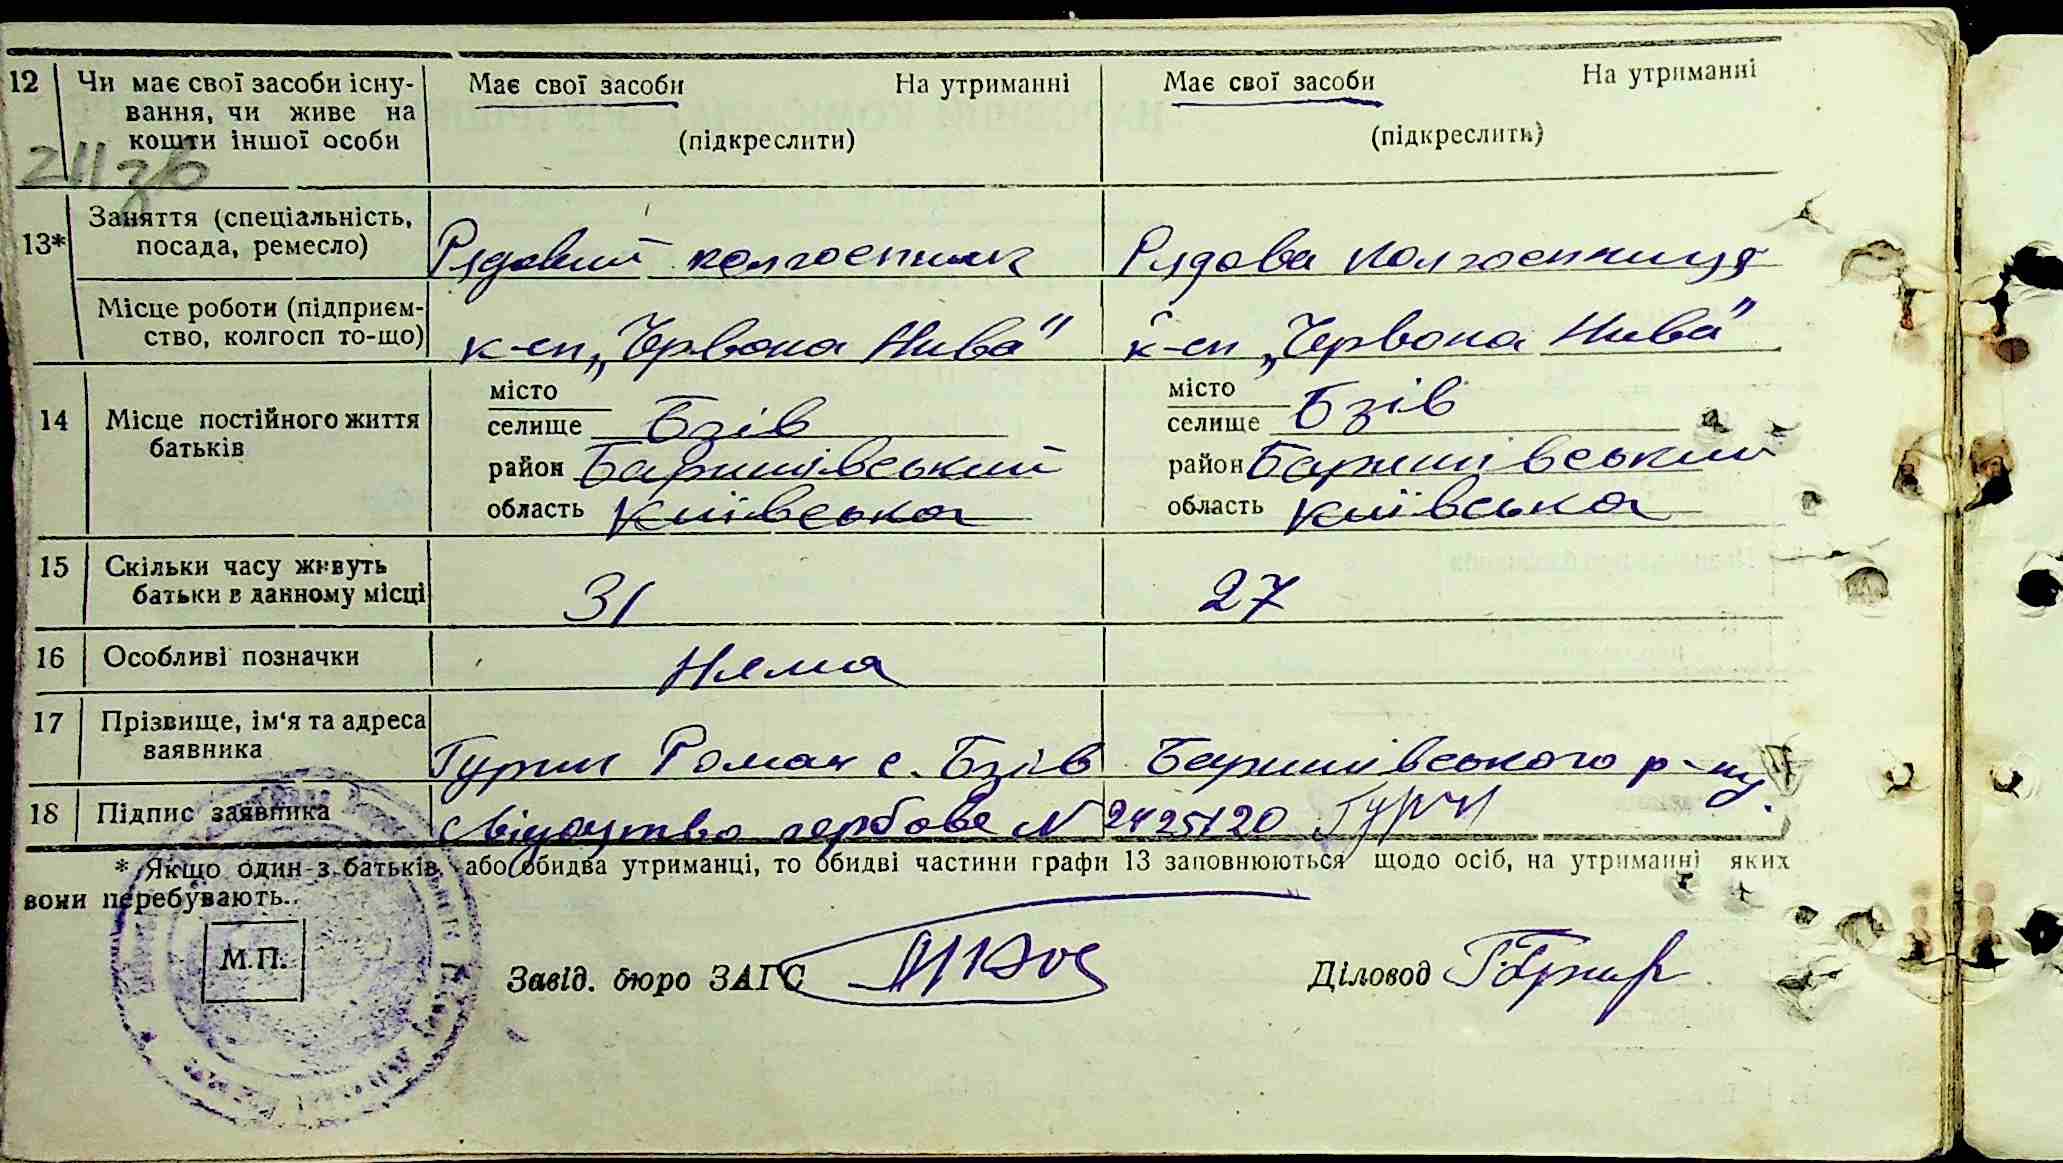 12 Чи має свої засоби існу- Має свої засоби На утриманні Має свої засоби На утриманні
вання, чи живе на
кошти іншої особи (підкреслити) (підкреслити)
211зв
Заняття (спеціальність,
13* посада, ремесло) Рядовий колгоспник Рядова колгоспниця
Місце роботи (підприєм-
ство, колгосп то-що) к-сп „Червона Нива" к-сп „Червона Нива"
місто місто
14 Місце постійного життя селище Бзів селище Бзів
батьків район Баришівський район Баришівський
область Київська область Київська
15 Скільки часу живуть
батьки в данному місці 31 27
16 Особливі позначки Няма
17 Прізвище, ім'я та адреса
заявника Гурин Роман с. Бзів Баришівського р-ну.
18 Підпис заявника свідоцтво гербове N 2425120 Гурин
* Якщо один з батьків, або обидва утриманці, то обидві частини графи 13 заповнюються щодо осіб, на утриманні яких
вони перебувають.
М.П.
Завід. бюро ЗАГС Діловод